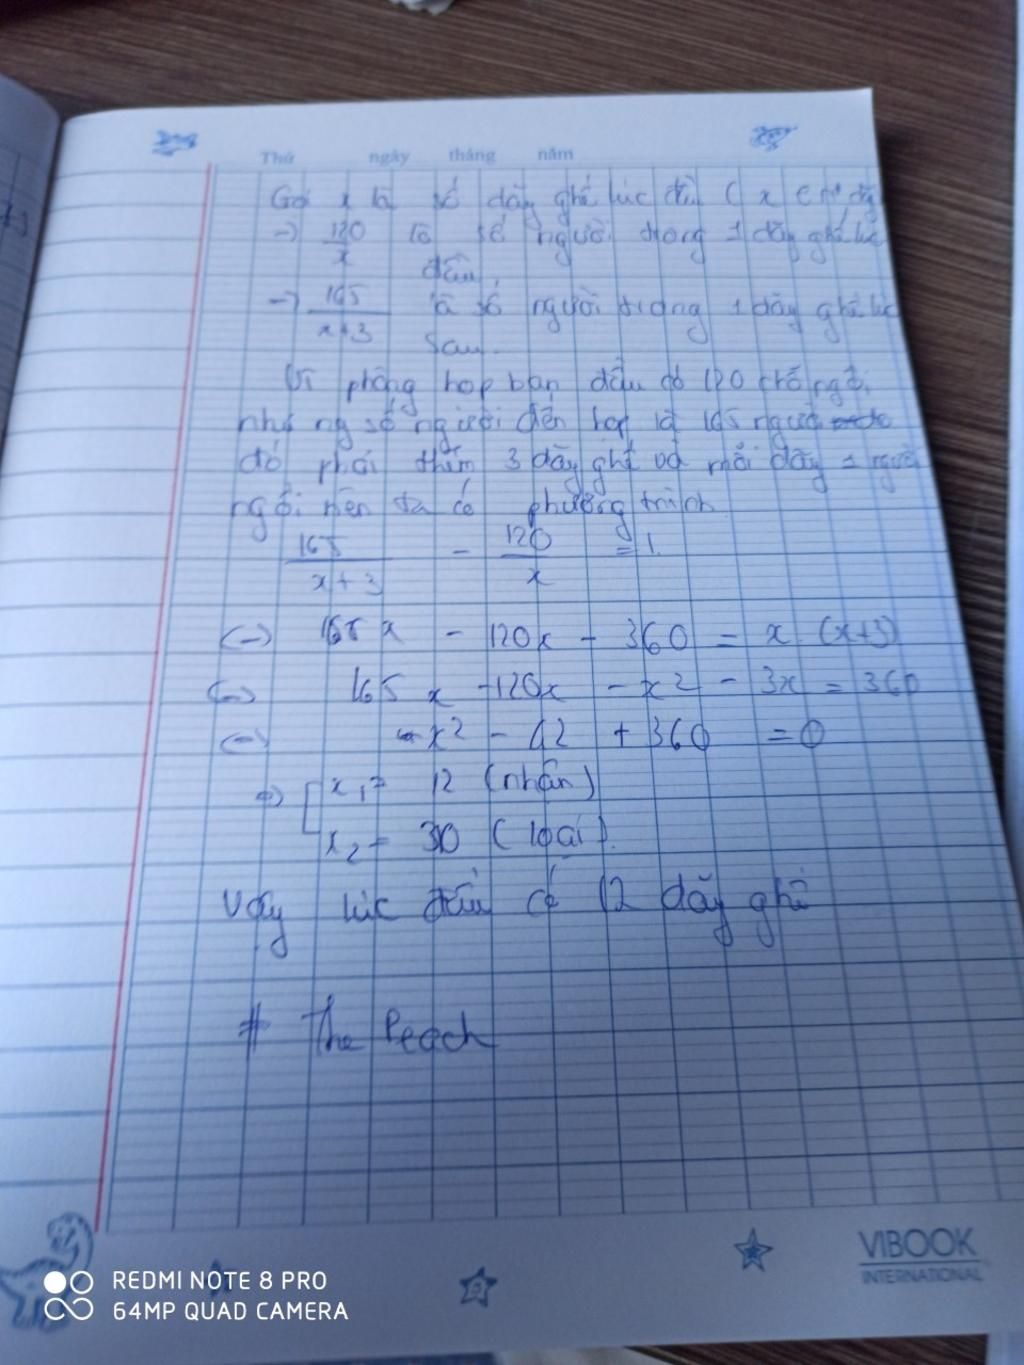 Thứ ngày tháng năm
Gọi x là số dãy ghế lúc đầu ( x
→ 120/x là số người trong 1 dãy ghế lúc
đầu
→ 165/x+3 là số người trong 1 dãy ghế lúc
sau.
Vì phòng họp ban đầu có 120 chỗ ngồi
nhưng số người đến họp là 165 người
đó phải thêm 3 dãy ghế và mỗi dãy 1 người
ngồi nên ta có phương trình
165/x+3 - 120/x = 1.
(-) 165 x - 120x - 360 = x (x+3)
(-) 165 x -120x - x² - 3x = 360
(-) x² - 42 + 360 = 0
x₁ = 12 (nhận)
x₂ = 30 (loại)
Vậy lúc đầu có 12 dãy ghế
# The Peach
VIBOOK
INTERNATIONAL
REDMI NOTE 8 PRO
64MP QUAD CAMERA